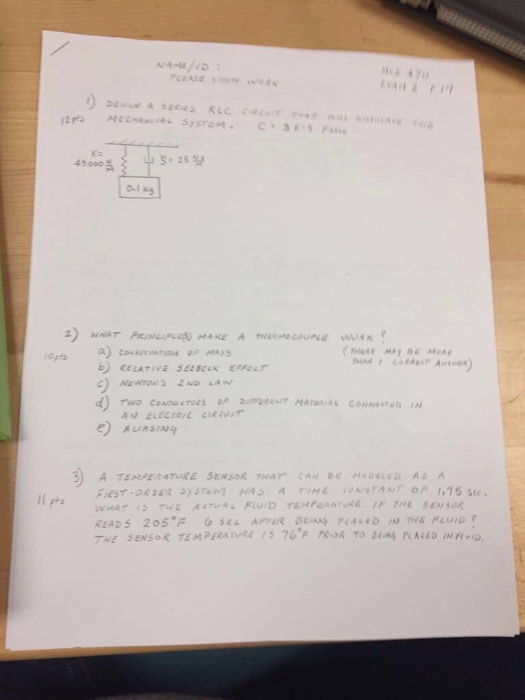 NAME/ID:
MCE 470
PLEASE SHOW WORK
EXAM 2 F17
1) DESIGN A SERIES RLC CIRCUIT THAT WILL SIMULATE THIS
12pts
MECHANICAL SYSTEM. C = 3E-5 FARAD
K=
45000 N/m
ξ = 25 N·s/m
0.1 kg
2) WHAT PRINCIPLE(S) MAKE A THERMOCOUPLE WORK?
10pts
(THERE MAY BE MORE
THAN 1 CORRECT ANSWER)
a) CONSERVATION OF MASS
b) RELATIVE SEEBECK EFFECT
c) NEWTON'S 2ND LAW
d) TWO CONDUCTORS OF DIFFERENT MATERIAL CONNECTED IN
AN ELECTRIC CIRCUIT
e) ALIASING
3) A TEMPERATURE SENSOR THAT CAN BE MODELED AS A
11 pts
FIRST-ORDER SYSTEM HAS A TIME CONSTANT OF 1.75 SEC.
WHAT IS THE ACTUAL FLUID TEMPERATURE IF THE SENSOR
READS 205°F 6 SEC AFTER BEING PLACED IN THE FLUID?
THE SENSOR TEMPERATURE IS 76°F PRIOR TO BEING PLACED IN FLUID.